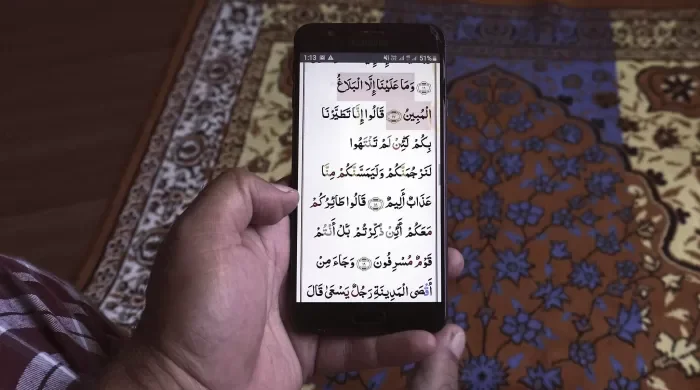 1:13 51%
وَمَا عَلَيْنَا إِلَّا الْبَلَاغُ
الْمُبِينُ قَالُوا إِنَّا تَطَيَّرْنَا
بِكُمْ لَئِنْ لَمْ تَنْتَهُوا
لَنَرْجُمَنَّكُمْ وَلَيَمَسَّنَّكُمْ مِنَّا
عَذَابٌ أَلِيمٌ قَالُوا طَائِرُكُمْ
مَعَكُمْ أَئِنْ ذُكِّرْتُمْ بَلْ أَنْتُمْ
قَوْمٌ مُسْرِفُونَ وَجَاءَ مِنْ
أَقْصَى الْمَدِينَةِ رَجُلٌ يَسْعَىٰ قَالَ